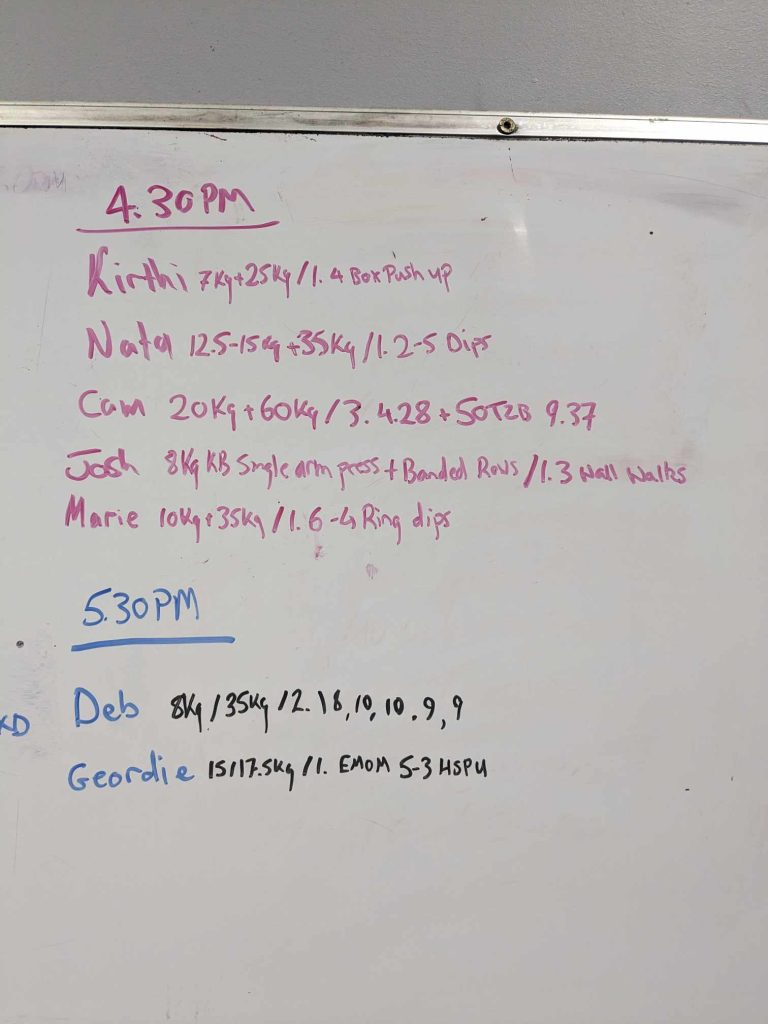 4.30PM
Kirthi 7Kg+25Kg/1. 4 Box Push up
Nata 12.5-15Kg+35Kg/1. 2-5 Dips
Cam 20Kg+60Kg/3. 4.28 + 50T2B 9.37
Josh 8Kg KB Single arm press + Banded Rows/1. 3 Wall Walks
Marie 10Kg+35Kg/1. 6-4 Ring dips
5.30PM
Deb 8Kg/35Kg/2. 18,10,10.9,9
Geordie 15/17.5Kg/1. EMOM 5-3 HSPU